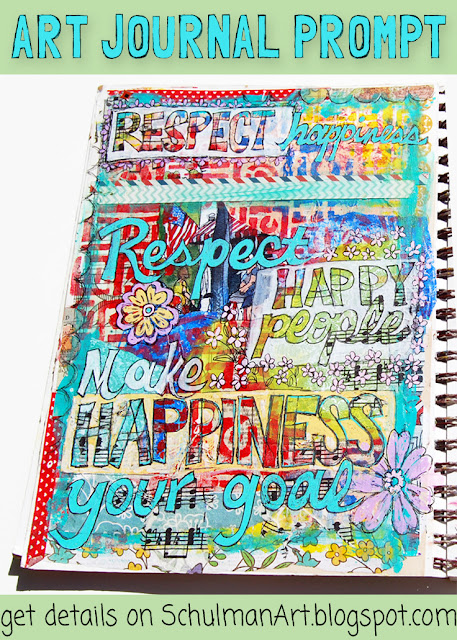 ART JOURNAL PROMPT
RESPECT happiness
Respect
HAPPY
people
Make
HAPPINESS
your goal
get details on SchulmanArt.blogspot.com